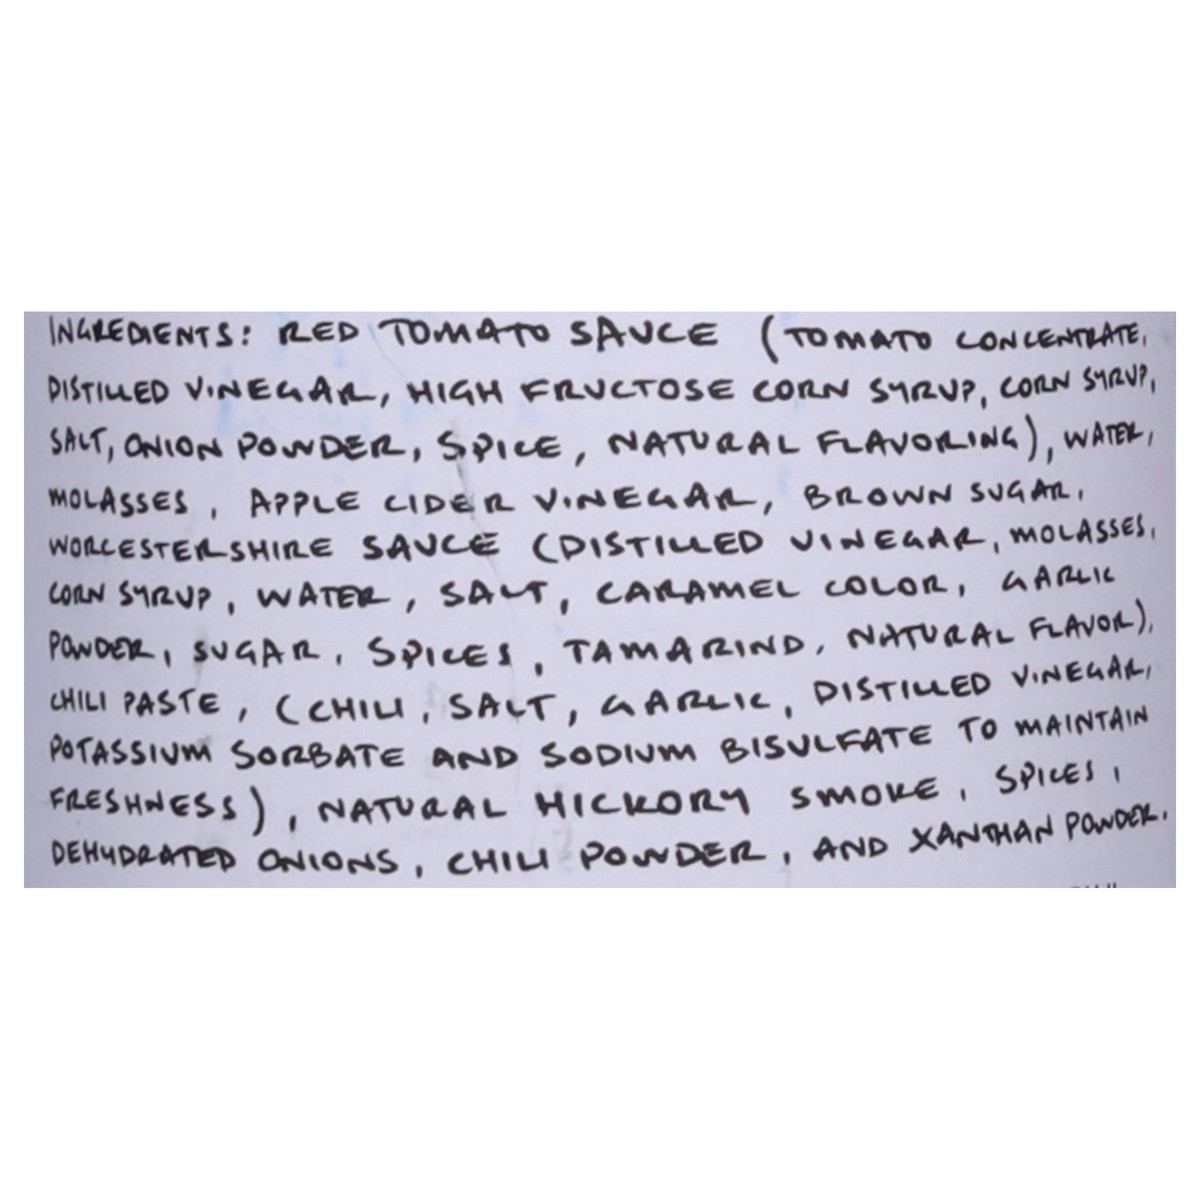 INGREDIENTS: RED TOMATO SAUCE (TOMATO CONCENTRATE,
DISTILLED VINEGAR, HIGH FRUCTOSE CORN SYRUP, CORN SYRUP,
SALT, ONION POWDER, SPICE, NATURAL FLAVORING), WATER,
MOLASSES, APPLE CIDER VINEGAR, BROWN SUGAR,
WORCESTERSHIRE SAUCE (DISTILLED VINEGAR, MOLASSES,
CORN SYRUP, WATER, SALT, CARAMEL COLOR, GARLIC
POWDER, SUGAR, SPICES, TAMARIND, NATURAL FLAVOR),
CHILI PASTE, (CHILI, SALT, GARLIC, DISTILLED VINEGAR,
POTASSIUM SORBATE AND SODIUM BISULFATE TO MAINTAIN
FRESHNESS), NATURAL HICKORY SMOKE, SPICES,
DEHYDRATED ONIONS, CHILI POWDER, AND XANTHAN POWDER.